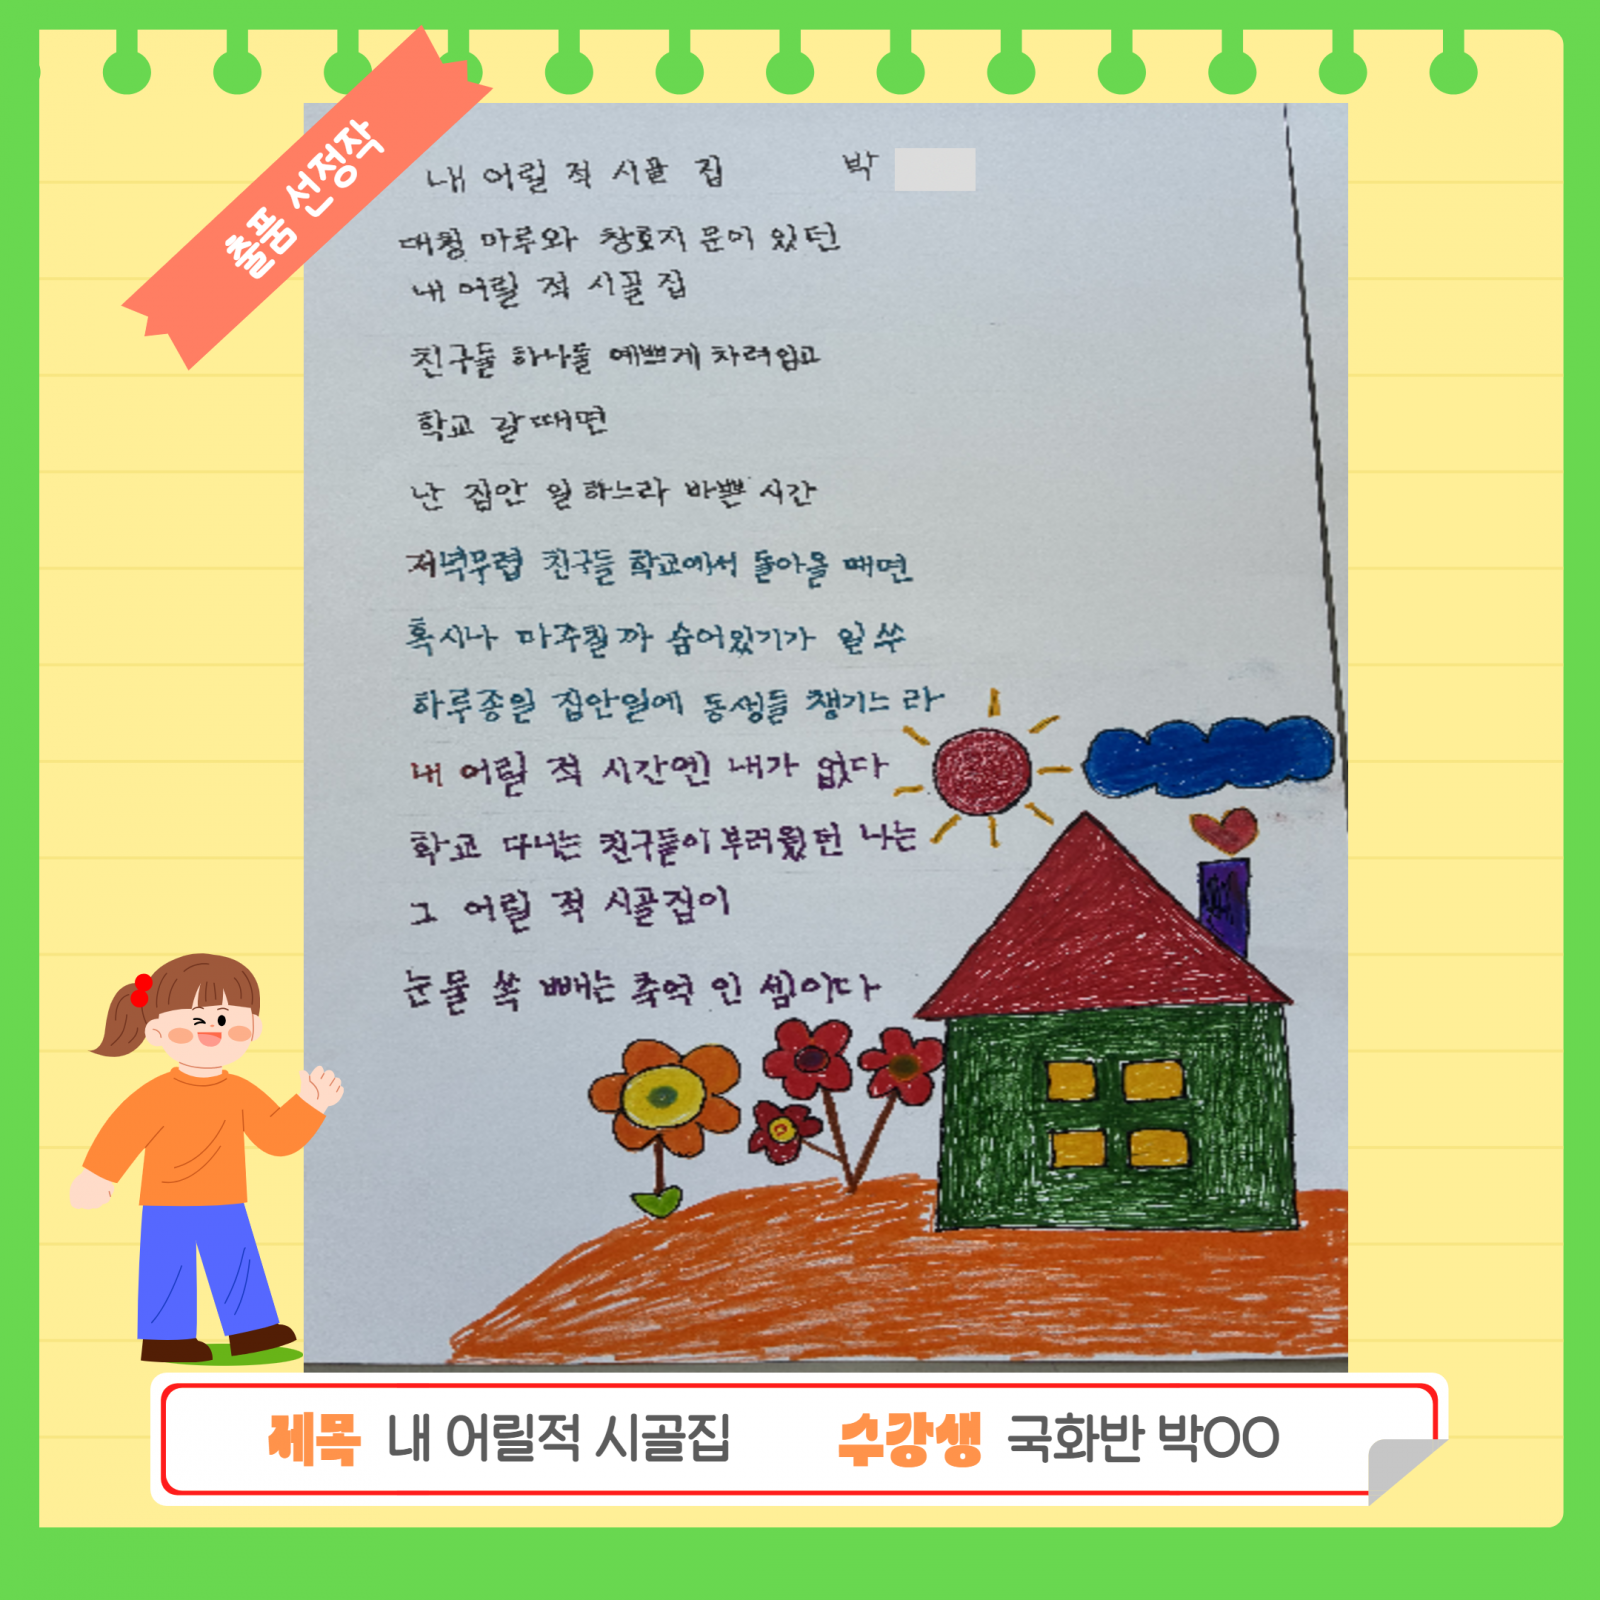 출품 선정작
내 어릴 적 시골 집 박
대청 마루와 창호지 문이 있던
내 어릴 적 시골 집
친구들 하나둘 예쁘게 차려입고
학교 갈때면
난 집안 일 하느라 바쁜 시간
저녁무렵 친구들 학교에서 돌아올 때면
혹시나 마주칠까 숨어있기가 일쑤
하루종일 집안일에 동생들 챙기느라
내 어릴 적 시간엔 내가 없다
학교 다니는 친구들이 부러웠던 나는
그 어릴 적 시골집이
눈물 쏙 빼는 추억 인 셈이다
제목 내 어릴적 시골집 수강생 국화반 박OO